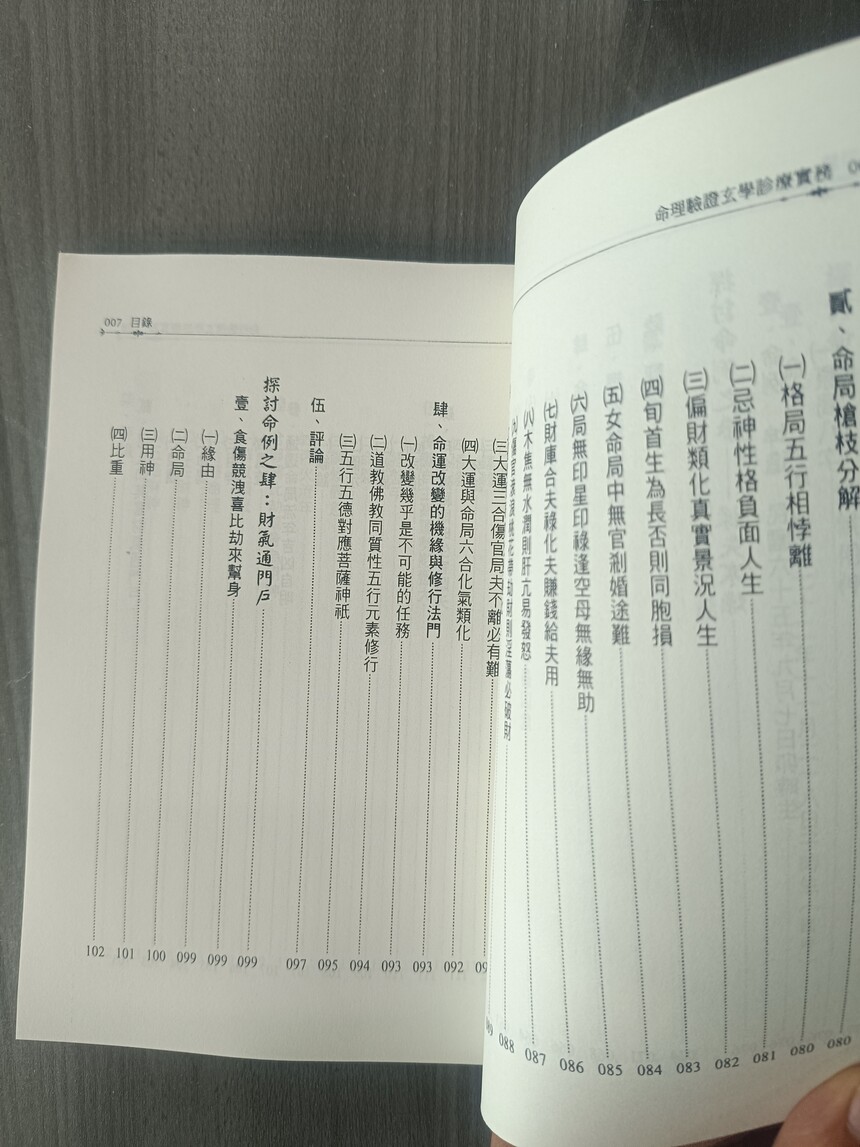 命理驗證玄學診療實務
貳、命局槍枝分解 080
㈠格局五行相悖離 080
㈡忌神性格負面人生 081
㈢偏財類化真實景況人生 082
㈣旬首生為長否則同胞損 083
㈤女命局中無官剎婚途難 084
㈥局無印星印祿逢空母無緣無助 085
㈦財庫合夫祿化夫賺錢給夫用 086
㈧木焦無水潤則肝亢易發怒 087
088
007 目錄
㈢大運三合傷官局夫不離必有難
㈣大運與命局六合化氣類化 092
肆、命運改變的機緣與修行法門 093
㈠改變幾乎是不可能的任務 093
㈡道教佛教同質性五行元素修行 094
㈢五行五德對應菩薩神祇 095
伍、評論 097
探討命例之肆：財氣通門戶 099
壹、食傷競洩喜比劫來幫身 099
㈠緣由 099
㈡命局 100
㈢用神 101
㈣比重 102